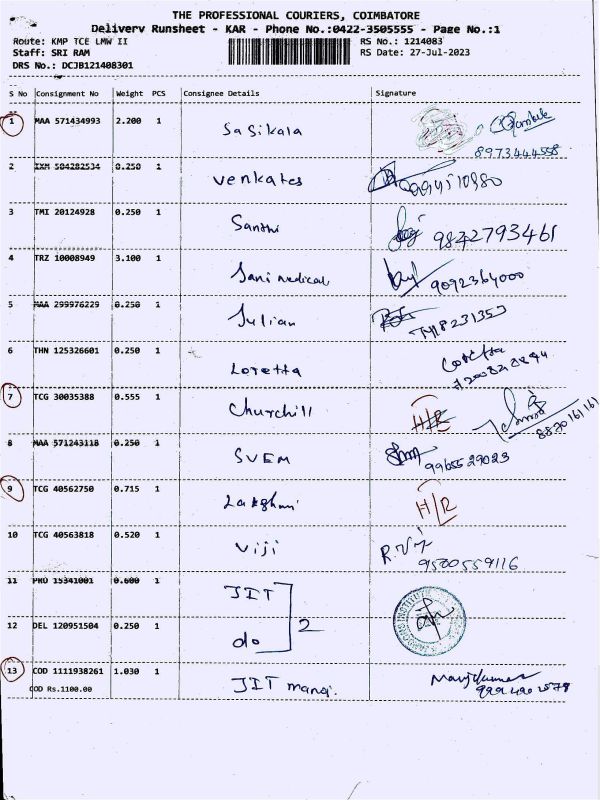 THE PROFESSIONAL COURIERS, COIMBATORE
Delivery Runsheet - KAR - Phone No.:0422-3505555 - Page No.:1
Route: KMP TCE LMW II RS No.: 1214083
Staff: SRI RAM RS Date: 27-Jul-2023
DRS No.: DCJB121408301
S No Consignment No Weight PCS Consignee Details Signature
1 MAA 571434993 2.200 1 Sasikala
8973444558
2 IXM 504282534 0.250 1 Venkates
3 TMI 20124928 0.250 1 Santhi 9842793461
4 TRZ 10008949 3.100 1 Jani medical 9092364000
5 MAA 299976229 0.250 1 Julian
6 THN 125326601 0.250 1 Loretta Loretta
7 TCG 30035388 0.555 1 Churchill H/R
8870161161
8 MAA 571243118 0.250 1 SVEM 9965529023
9 TCG 40562750 0.715 1 H/R
10 TCG 40563818 0.520 1 Viji R.Viji
9500559116
11 PRO 15341001 0.600 1 JIT
2
12 DEL 120951504 0.250 1 do
13 COD 1111938261 1.030 1 JIT manoj. Manojkumar
COD Rs.1100.00